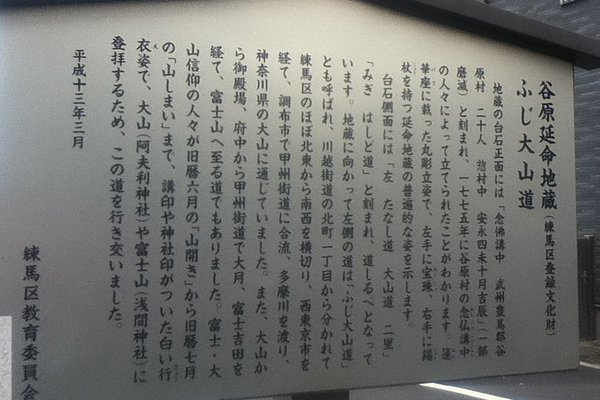 谷原延命地蔵(練馬区登録文化財)
ふじ大山道
地蔵の台石正面には「念佛講中 武州豊嶌郡谷
原村 二十人 惣村中 安永四未十月吉辰」(一部
磨滅)と刻まれ、一七七五年に谷原村の念仏講中
の人々によって立てられたことがわかります。蓮
華座に載った丸彫立姿で、左手に宝珠、右手に錫
杖を持つ延命地蔵の普遍的な姿を示します。
台石側面には「左 たなし道 大山道 二里」
「みぎ はしど道」と刻まれ、道しるべとなって
います。地蔵に向かって左側の道は「ふじ大山道」
とも呼ばれ、川越街道の北町一丁目から分かれて
練馬区のほぼ北東から南西を横切り、西東京市を
経て、調布市で甲州街道に合流、多摩川を渡り、
神奈川県の大山に通じていました。また、大山か
ら御殿場、府中から甲州街道で大月、富士吉田を
経て、富士山へ至る道でもありました。富士・大
山信仰の人々が旧暦六月の「山開き」から旧暦七月
の「山しまい」まで、講印や神社印がついた白い行
衣姿で、大山(阿夫利神社)や富士山(浅間神社)に
登拝するため、この道を行き交いました。
平成十三年三月
練馬区教育委員会